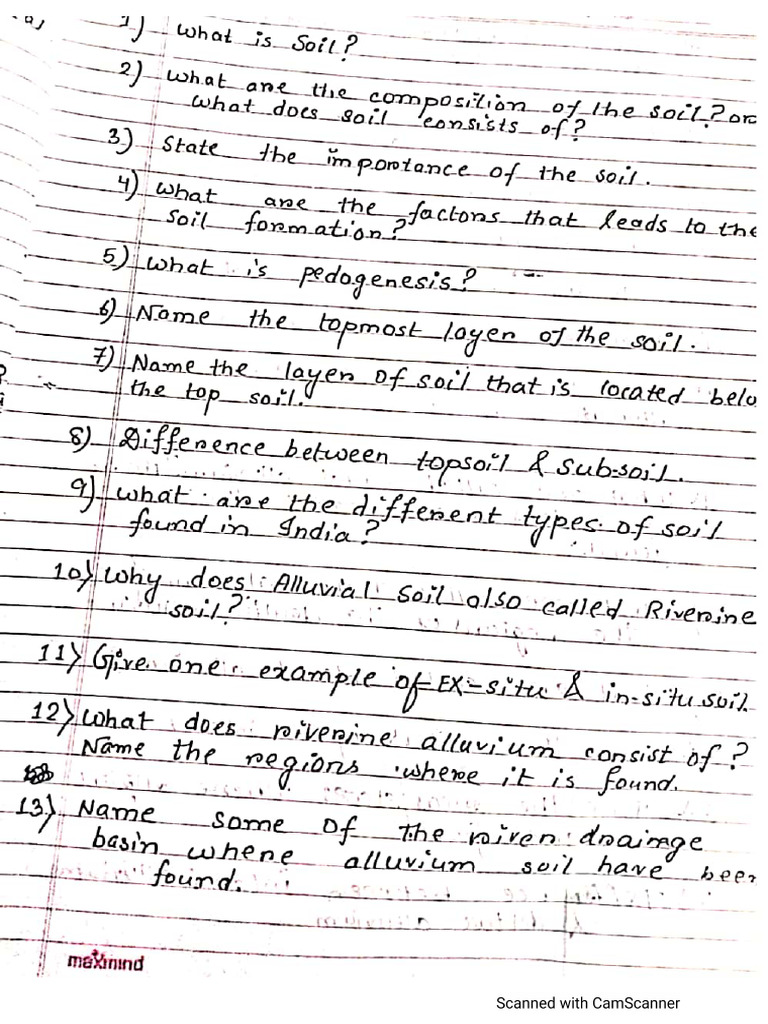 1) What is Soil?
2) What are the composition of the soil? or
what does soil consists of?
3.) State the importance of the soil.
4) What are the factors that leads to the
soil formation?
5.) What is pedogenesis?
6) Name the topmost layer of the soil.
7) Name the layer of soil that is located belo
the top soil.
8) Difference between topsoil & sub-soil.
9) What are the different types of soil
found in India?
10) Why does Alluvial Soil also called Riverine
soil?
11) Give one example of EX-situ & in-situ soil.
12) What does riverine alluvium consist of?
Name the regions where it is found.
13) Name some of the river drainage
basin where alluvium soil have been
found.
maxmind
Scanned with CamScanner